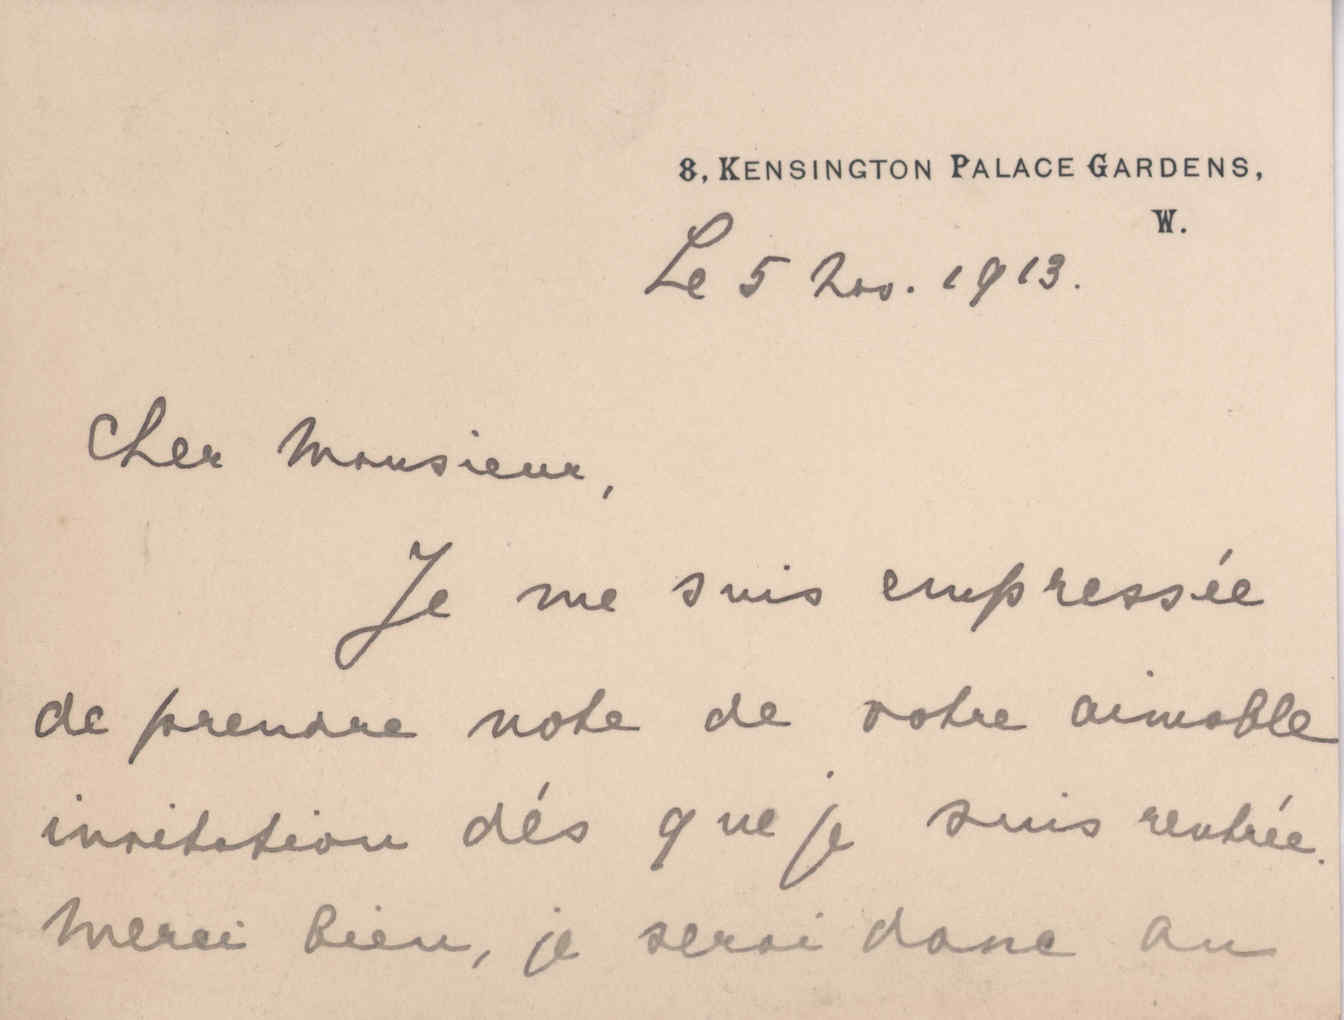 8, KENSINGTON PALACE GARDENS,
W.
Le 5 Nov. 1913.
Cher Monsieur,
Je me suis empressée
de prendre note de votre aimable
invitation dés que je suis rentrée.
Merci bien, je serai donc au